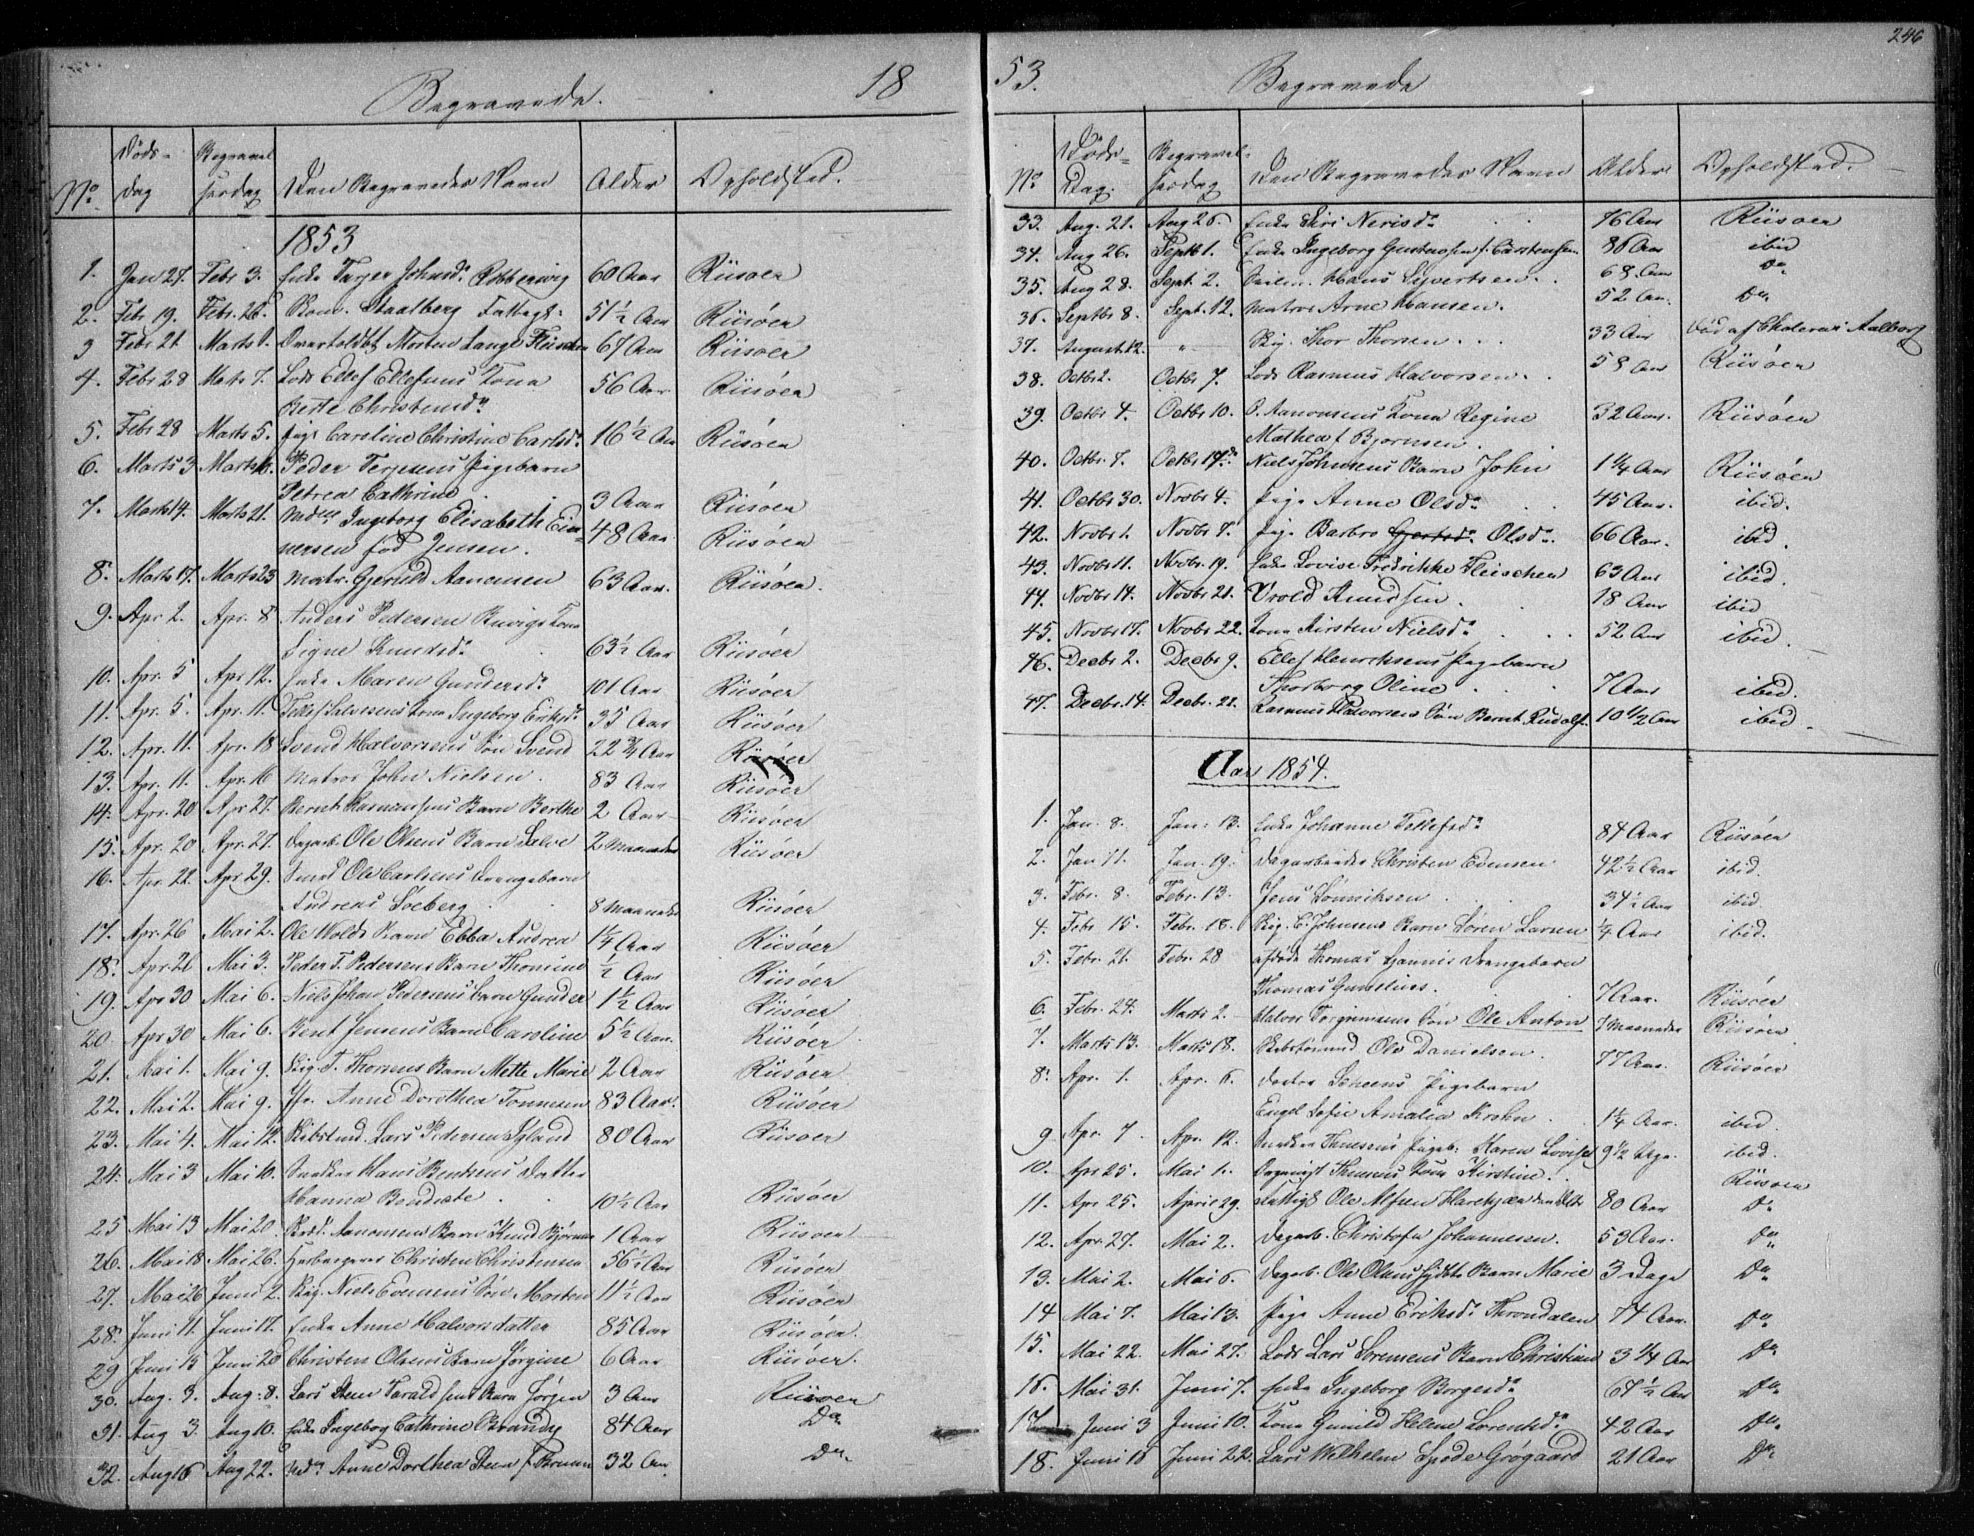 246
Begravede. 18
No. Døds-dag Begravelsesdag Den Begravedes Navn Alder Opholdsted.
1853
1. Jan 27. Febr 3. Enke Johnsd. 60 Aar Riisøer
2. Febr 19. Febr. 26. Staalberg Fattigl: 51 1/2 Aar Riisøer
3 Febr 21 Marts 1. Morten Lange Fleischer 67 Aar Riisøer
4. Febr 28 Marts 7. Lods Ellef Ellefsens Kona
Berte Christensd. 56 Aar Riisøer
5. Febr 28 Marts 5. Pige Caroline Christine Carlsd. 16 1/2 Aar Riisøer
6. Marts 3 Marts Peder Terjesens Pigebarn
Petrea Cathrine 3 Aar Riisøer
7. Marts 14. Marts 21. Mdm Ingeborg Elisabeth Ei-
nersen fød Jensen. 48 Aar Riisøer
8. Marts 17. Marts 23 Matr. Gjeruld Aanonsen 63 Aar. Riisøer.
9. Apr 2. Apr. 8 Anders Pedersen Kona
Signe Knudsd. 63 1/2 Aar Riisøer
10. Apr. 5 Apr 12. Enke Maren Gundersd. 101 Aar Riisøer
11. Apr. 5. Apr. 11. Kona Ingeborg Eriksd. 35 Aar Riisøer
12. Apr. 11. Apr. 18 Svend Halvorsens Søn Svend 22 3/4 Aar Riisøer
13. Apr. 11. Apr. 16 Matros John Nielsen. 83 Aar Riisøer
14. Apr. 20 Apr 27. Bernt Barn Berthe 2 Aar Riisøer
15. Apr. 20 Apr. 27. Dagarb. Ole Olsens Barn Salve 2 Maaneder Riisøer
16. Apr. 22. Apr 29. Smed Ole Carlsens Drengebarn
Andreas Søeberg 8 Maaneder Riisøer
17. Apr. 26 Mai 2. Ole Wolds Barn Ebba Andrea 1 1/4 Aar Riisøer
18. Apr. 26 Mai 3. Peder T. Pedersens Barn Thomine 1/2 Aar Riisøer
19. Apr 30 Mai 6. Niels Johan Pedersens Barn Gunder 1 1/2 Aar Riisøer
20. Apr 30 Mai 6. Bent Jensens Barn Caroline 5 1/2 Aar. Riisøer
21. Mai 1. Mai 9. Big. T. Thorsens Barn Mette Marie 2 Aar Riisøer
22. Mai 2. Mai 9. Jfr. Anne Dorothea Tønnesen 83 Aar. Riisøer
23. Mai 4. Mai 12. Lars Pedersen 80 Aar Riisøer
24. Mai 3 Mai 10. Snedker Hans Bentsens Datter
Hanna Bendicte 10 1/2 Aar Riisøer
25 Mai 13 Mai 20. Aanonsens Barn Knud 1 Aar Riisøer
26. Mai 18 Mai 26. Christen Christensen 56 1/2 Aar Riisøer
27. Mai 26 Juni 2. Big. Niels Evensens Søn Morten 11 1/2 Aar Riisøer
28. Juni 11. Juni 17. Enke Anne Halvorsdatter 85 Aar Riisøer.
29 Juni 15 Juni 20 Christen Olsens Barn Jørgine 6 Aar Riisøer.
30. Aug. 3. Aug: 8. Lars Steen Taraldsens Barn Jørgen 3 Aar Riisøer
31. Aug 3. Aug 10. Enke Ingeborg Cathrine Brandt 84 Aar Do
32. Aug 16 Aug 22. Anne Dorthea Steen f. 32 Aar Do
53. Begravede
No Døds-Dag. Begravelsesdag Den Begravedes Navn Alder Opholdsted.
33. Aug. 21. Aug 26. Enke Siri Nerisd. 76 Aar Riisøer
34. Aug 26. Septb 1. Enke Ingeborg Gustavsen f. Carstensen 86 Aar ibid
35. Aug 28. Sept. 2. Hans Syvertsen 68. Aar Do
36. Septbr 8. Sept. 12. Matros Arne Hansen. 52 Aar. Do
37. August 12. " Big. Thor Thorsen . . . 33 Aar Død af Cholera i Aalborg
38. Octbr 2. Octbr 7. Lods Rasmus Halvorsen. 58 Aar Riisøer
39. Octbr 4. Octbr 10. O. Aanonsens Kona Regine
Mathea f Bjornsen. 32 Aar. Riisøer
40. Octbr. 7. Octbr Niels Johnsens Barn John 1 1/4 Aar Riisøer
41. Octbr 30. Novbr 4. Pige Anne Olsd. 45 Aar. ibid.
42. Novbr 1. Novbr 7. Pige Barbro Gjertsd. Olsd. 66 Aar. ibid.
43. Novbr 11. Novbr. 19. Enke Lovise Fredrikke Fleischer 63 Aar ibid.
44. Novbr 14. Novbr 21. Vrold Knudsen. 18 Aar ibid
45. Novbr 17. Novbr 22. Kona Kirsten Nielsd. 52 Aar ibid
46. Decbr 2. Decbr 9. Ellef Henrichsens Pigebarn
Thorborg Oline 7 Aar ibid.
47. Decbr. 14. Decbr. 21. Rasmus Halvorsens Søn Bernt Rudolf. 10 1/2 Aar ibid.
Aar 1854.
1. Jan. 8. Jan: 13. Enke Johanne Tellefsd. 84 Aar Riisøer
2. Jan 11. Jan. 19. Dagarbeider Christen Evensen 42 1/2 Aar ibid.
3. Febr. 8. Febr. 13. Jens 34 1/2 Aar ibid
4. Febr 15. Febr. 18. Big. C. Johnsens Barn Søren Larsen 1/4 Aar ibid.
5. Febr. 21. Febr. 28 afdøde Thomas Drengebarn
Thomas 7 Aar. Riisøer
6. Febr. 24. Marts 2. Halvor Torgrimsens Søn Ole Anton 7 Maaneder Riisøer
7. Marts 13. Marts 18. Ole Danielsen. 77 Aar. Riisøer
8. Apr. 1. Apr. 6. Doctor Scheens Pigebarn
Engel Sofie Amalia Krohn 1 1/4 Aar. ibid.
9 Apr. 7 Apr. 12. Snedker Pigeb. Karen Lovise 9 1/2 ibid.
10. Apr 25. Mai 1. Kona Kirstine. Riisøer
11. Apr 25. April 29. Fattigl Ole 80 Aar Do
12. Apr. 27. Mai 2. Dagarb. Christofer Johannesen. 53 Aar. Do
13. Mai 2. Mai 6. Dagarb. Ole Olsens Barn Marie 3 Dage Do
14 Mai 7. Mai 13. Pige Anne Eriksd. Throndalen 74 Aar. Do
15. Mai 22. Mai 27. Lods Lars Sørensens Barn Christian 3 1/4 Aar Do
16. Mai 31. Juni 7. Enke Ingeborg Borgersd. 67 1/2 Aar Do
17 Juni 3 Juni 10. Kona Gunild Helene Lorentsd. 42 Aar Do
18. Juni 18 Juni 22. Lars Wilhelm Spøde Grøgaard 21 Aar Do